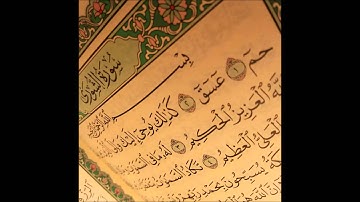 سُورَةُ الشُّورَىٰ
بِسْمِ
حمٓ ١ عٓسٓقٓ ٢ كَذَٰلِكَ يُوحِىٓ إِلَيْكَ وَإِلَى
ٱللَّهُ ٱلْعَزِيزُ ٱلْحَكِيمُ ٣ لَهُۥ مَا فِى
ٱلْعَلِىُّ ٱلْعَظِيمُ ٤ تَكَادُ ٱلسَّمَٰوَٰتُ
يُسَبِّحُونَ بِحَمْدِ رَبِّهِمْ